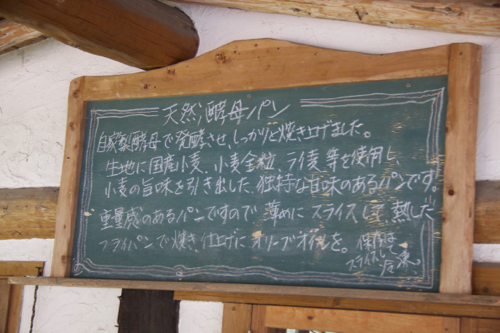 天然酵母パン
自家製酵母で発酵させ、しっかりと焼き上げました。
生地に国産小麦、小麦全粒、ライ麦等を使用し、
小麦の旨味を引き出した、独特な旨味のあるパンです。
重量感のあるパンですので 薄めに スライスして、熱した
フライパンで焼き、仕上げに オリーブオイルを。
スライスし